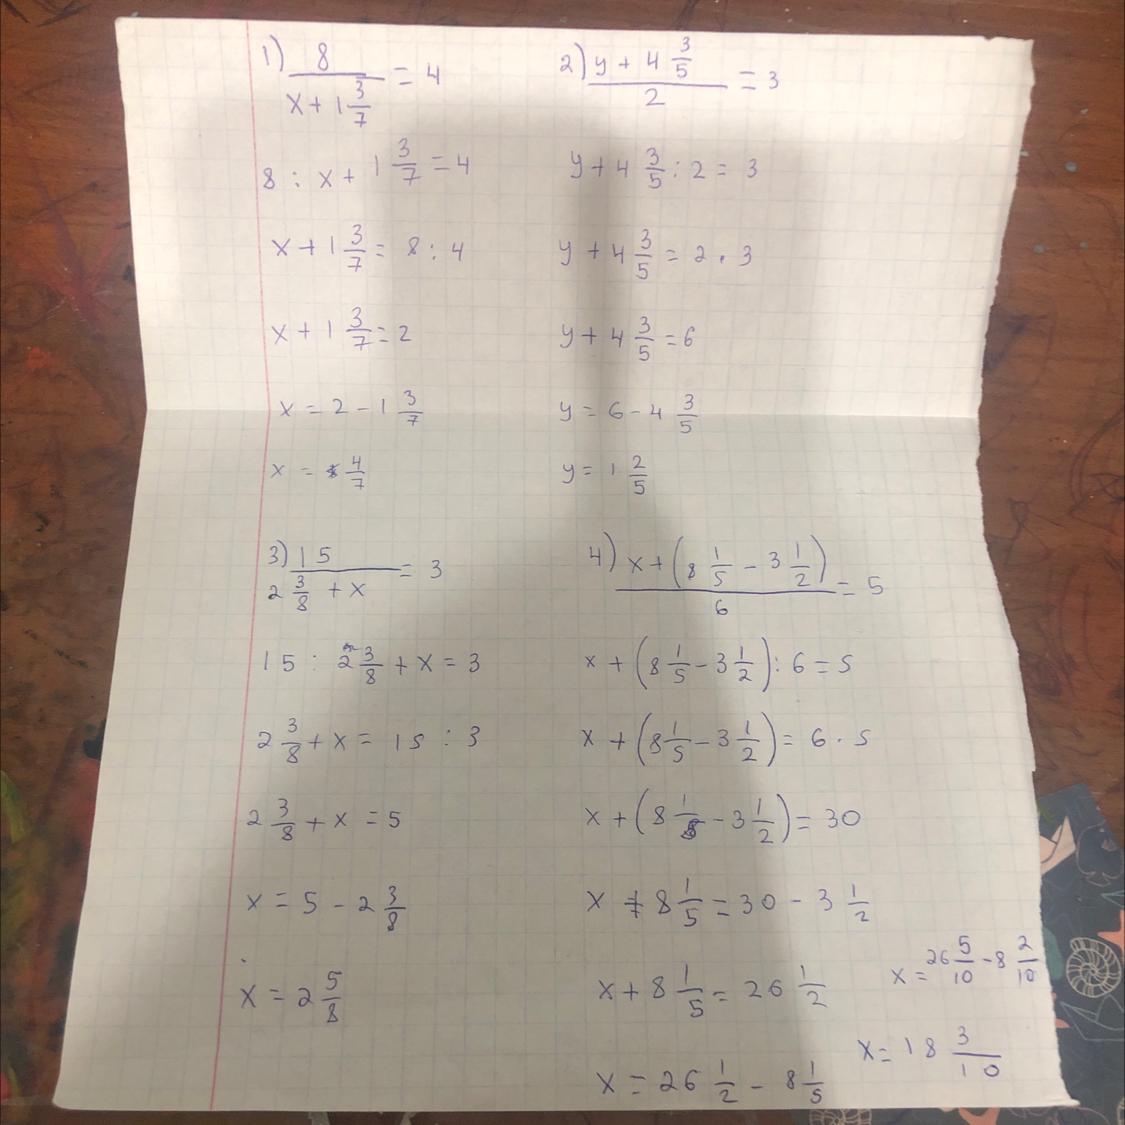 1) 8 / (x + 1 3/7) = 4
8 : x + 1 3/7 = 4
x + 1 3/7 = 8 : 4
x + 1 3/7 = 2
x = 2 - 1 3/7
x = 4/7
2) (y + 4 3/5) / 2 = 3
y + 4 3/5 : 2 = 3
y + 4 3/5 = 2 · 3
y + 4 3/5 = 6
y = 6 - 4 3/5
y = 1 2/5
3) 15 / (2 3/8 + x) = 3
15 : 2 3/8 + x = 3
2 3/8 + x = 15 : 3
2 3/8 + x = 5
x = 5 - 2 3/8
x = 2 5/8
4) (x + (8 1/5 - 3 1/2)) / 6 = 5
x + (8 1/5 - 3 1/2) : 6 = 5
x + (8 1/5 - 3 1/2) = 6 · 5
x + (8 1/5 - 3 1/2) = 30
x + 8 1/5 = 30 - 3 1/2
x + 8 1/5 = 26 1/2
x = 26 1/2 - 8 1/5
x = 26 5/10 - 8 2/10
x = 18 3/10